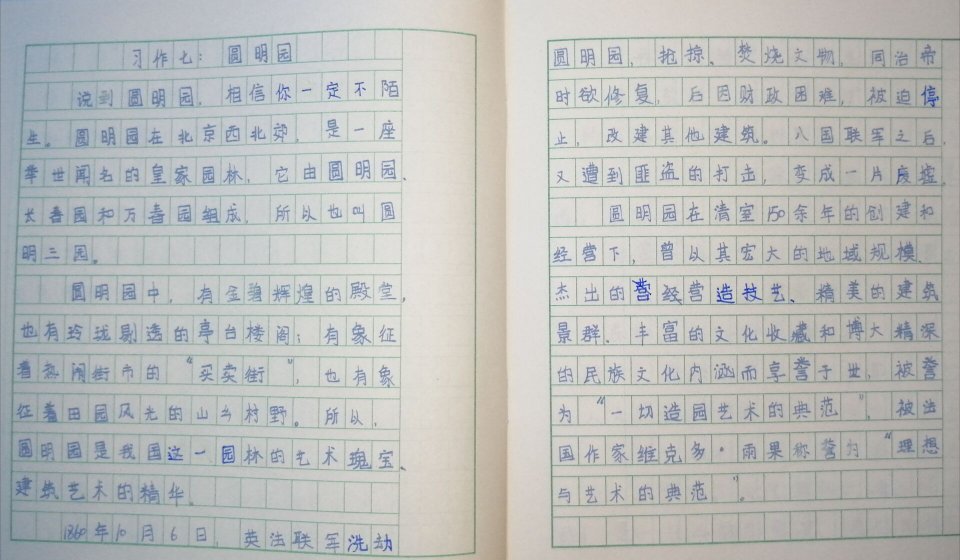 习作七：圆明园
说到圆明园，相信你一定不陌
生。圆明园在北京西北郊，是一座
举世闻名的皇家园林，它由圆明园、
长春园和万春园组成，所以也叫圆
明三园。
圆明园中，有金碧辉煌的殿堂，
也有玲珑剔透的亭台楼阁；有象征
着热闹街市的“买卖街”，也有象
征着田园风光的山乡村野。所以，
圆明园是我国这一园林的艺术瑰宝、
建筑艺术的精华。
1860年10月6日，英法联军洗劫
圆明园，抢掠、焚烧文物，同治帝
时欲修复，后因财政困难，被迫停
止，改建其他建筑。八国联军之后，
又遭到匪盗的打击，变成一片废墟。
圆明园在清室150余年的创建和
经营下，曾以其宏大的地域规模、
杰出的营经营造技艺、精美的建筑
景群、丰富的文化收藏和博大精深
的民族文化内涵而享誉于世，被誉
为“一切造园艺术的典范”，被法
国作家维克多·雨果称誉为“理想
与艺术的典范”。